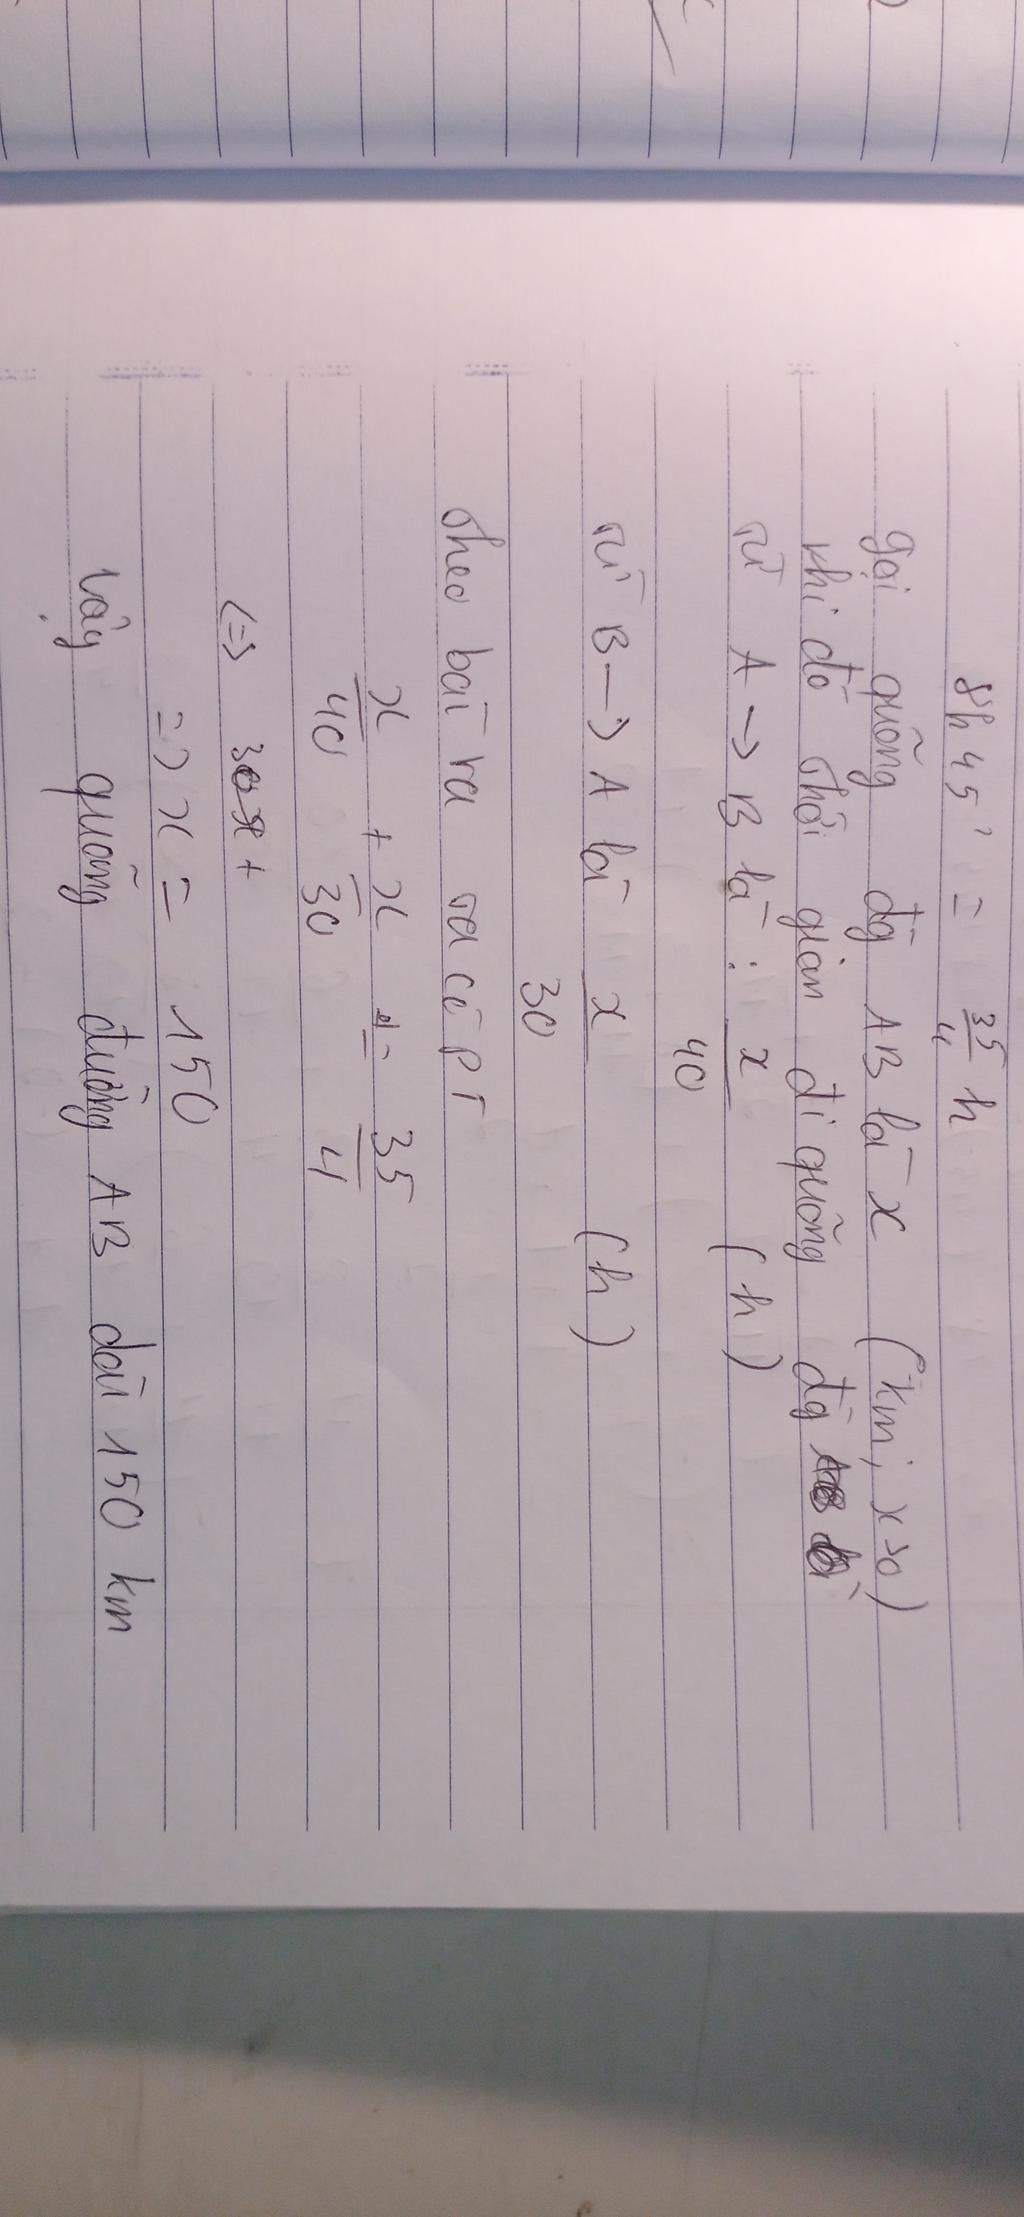 8h45' = 35/4 h
gọi quãng đg AB là x (km; x>0)
khi đó thời gian đi quãng đg
từ A → B là : x/40 (h)
từ B → A là x/30 (h)
theo bài ra ta có PT
x/40 + x/30 = 35/4
<=> 30x +
=> x = 150
Vậy quãng đường AB dài 150 km